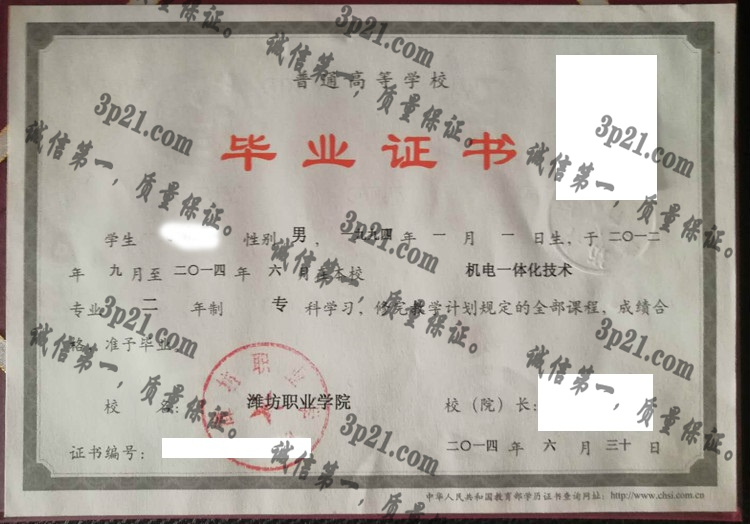 普通高等学校
毕业证书
学生 性别 男 ,一九九四 年 一 月 一 日生,于 二〇一二
年 九 月至 二〇一四 年 六 月在本校 机电一体化技术
专业 二 年制 专 科学习,修完教学计划规定的全部课程,成绩合
格,准予毕业。
校 名: 潍坊职业学院 校(院)长:
证书编号: 二〇一四 年 六 月 三十 日
中华人民共和国教育部学历证书查询网址:http://www.chsi.com.cn
3p21.com
诚信第一,质量保证。
3p21.com
诚信第一,质量保证。
3p21.com
诚信第一,质量保证。
3p21.com
诚信第一,质量保证。
3p21.com
诚信第一,质量保证。
3p21.com
诚信第一,质量保证。
3p21.com
诚信第一,质量保证。